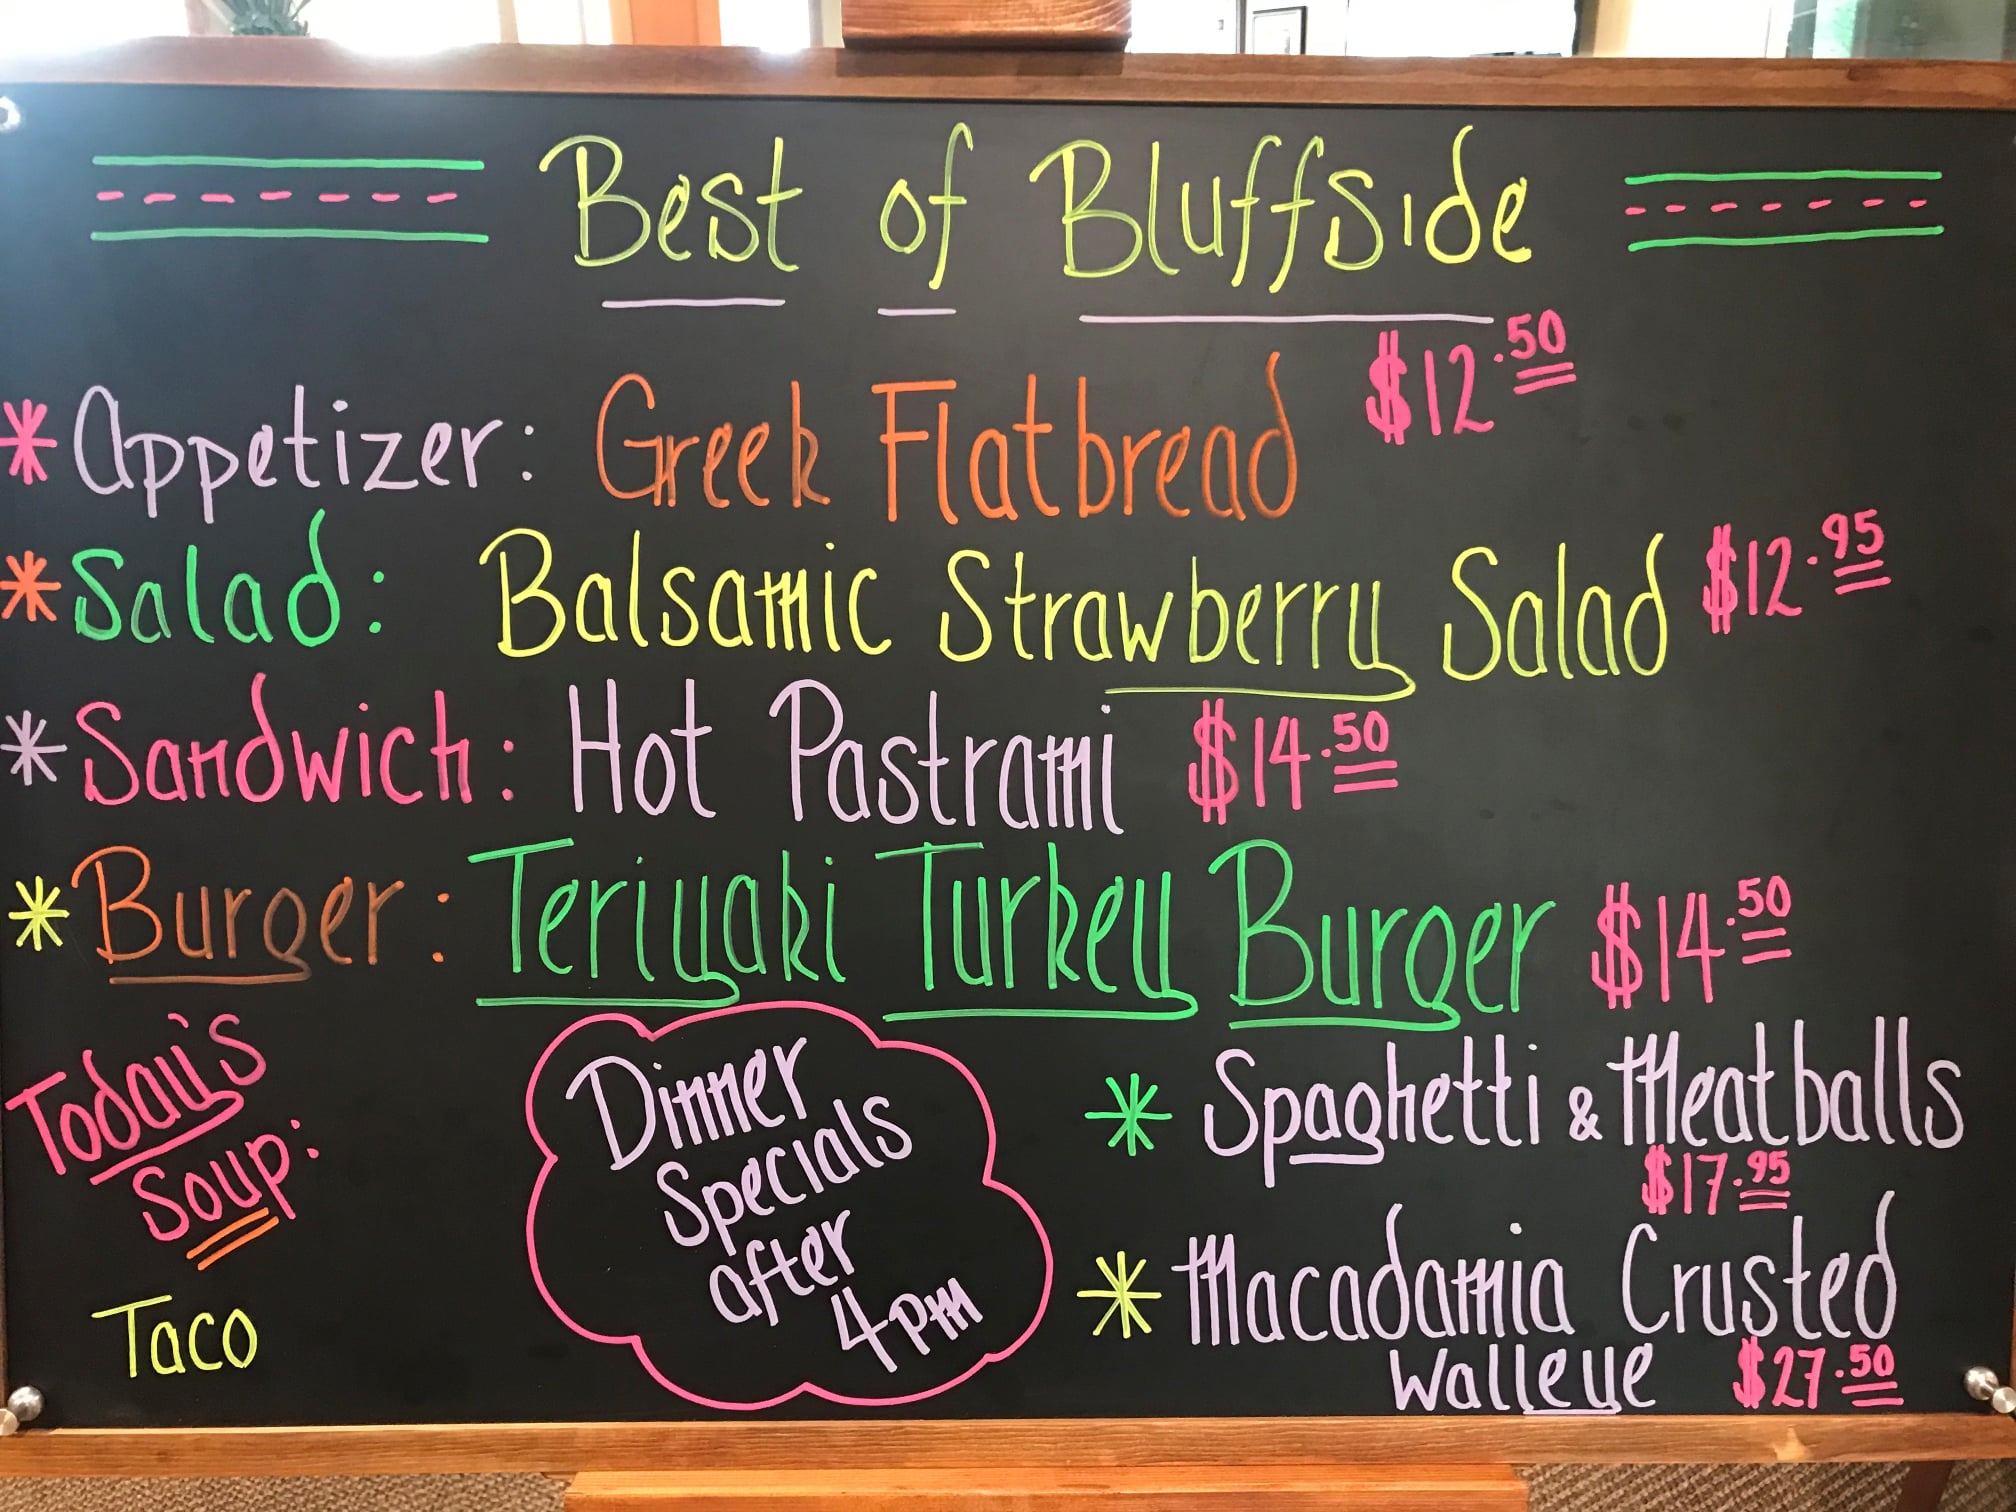 Best of Bluffside
*Appetizer: Greek Flatbread $12.50
*Salad: Balsamic Strawberry Salad $12.95
*Sandwich: Hot Pastrami $14.50
*Burger: Teriyaki Turkey Burger $14.50
Today's
Soup:
Taco
Dinner
Specials
after
4pm
* Spaghetti & Meatballs
$17.95
* Macadamia Crusted
Walleye $27.50